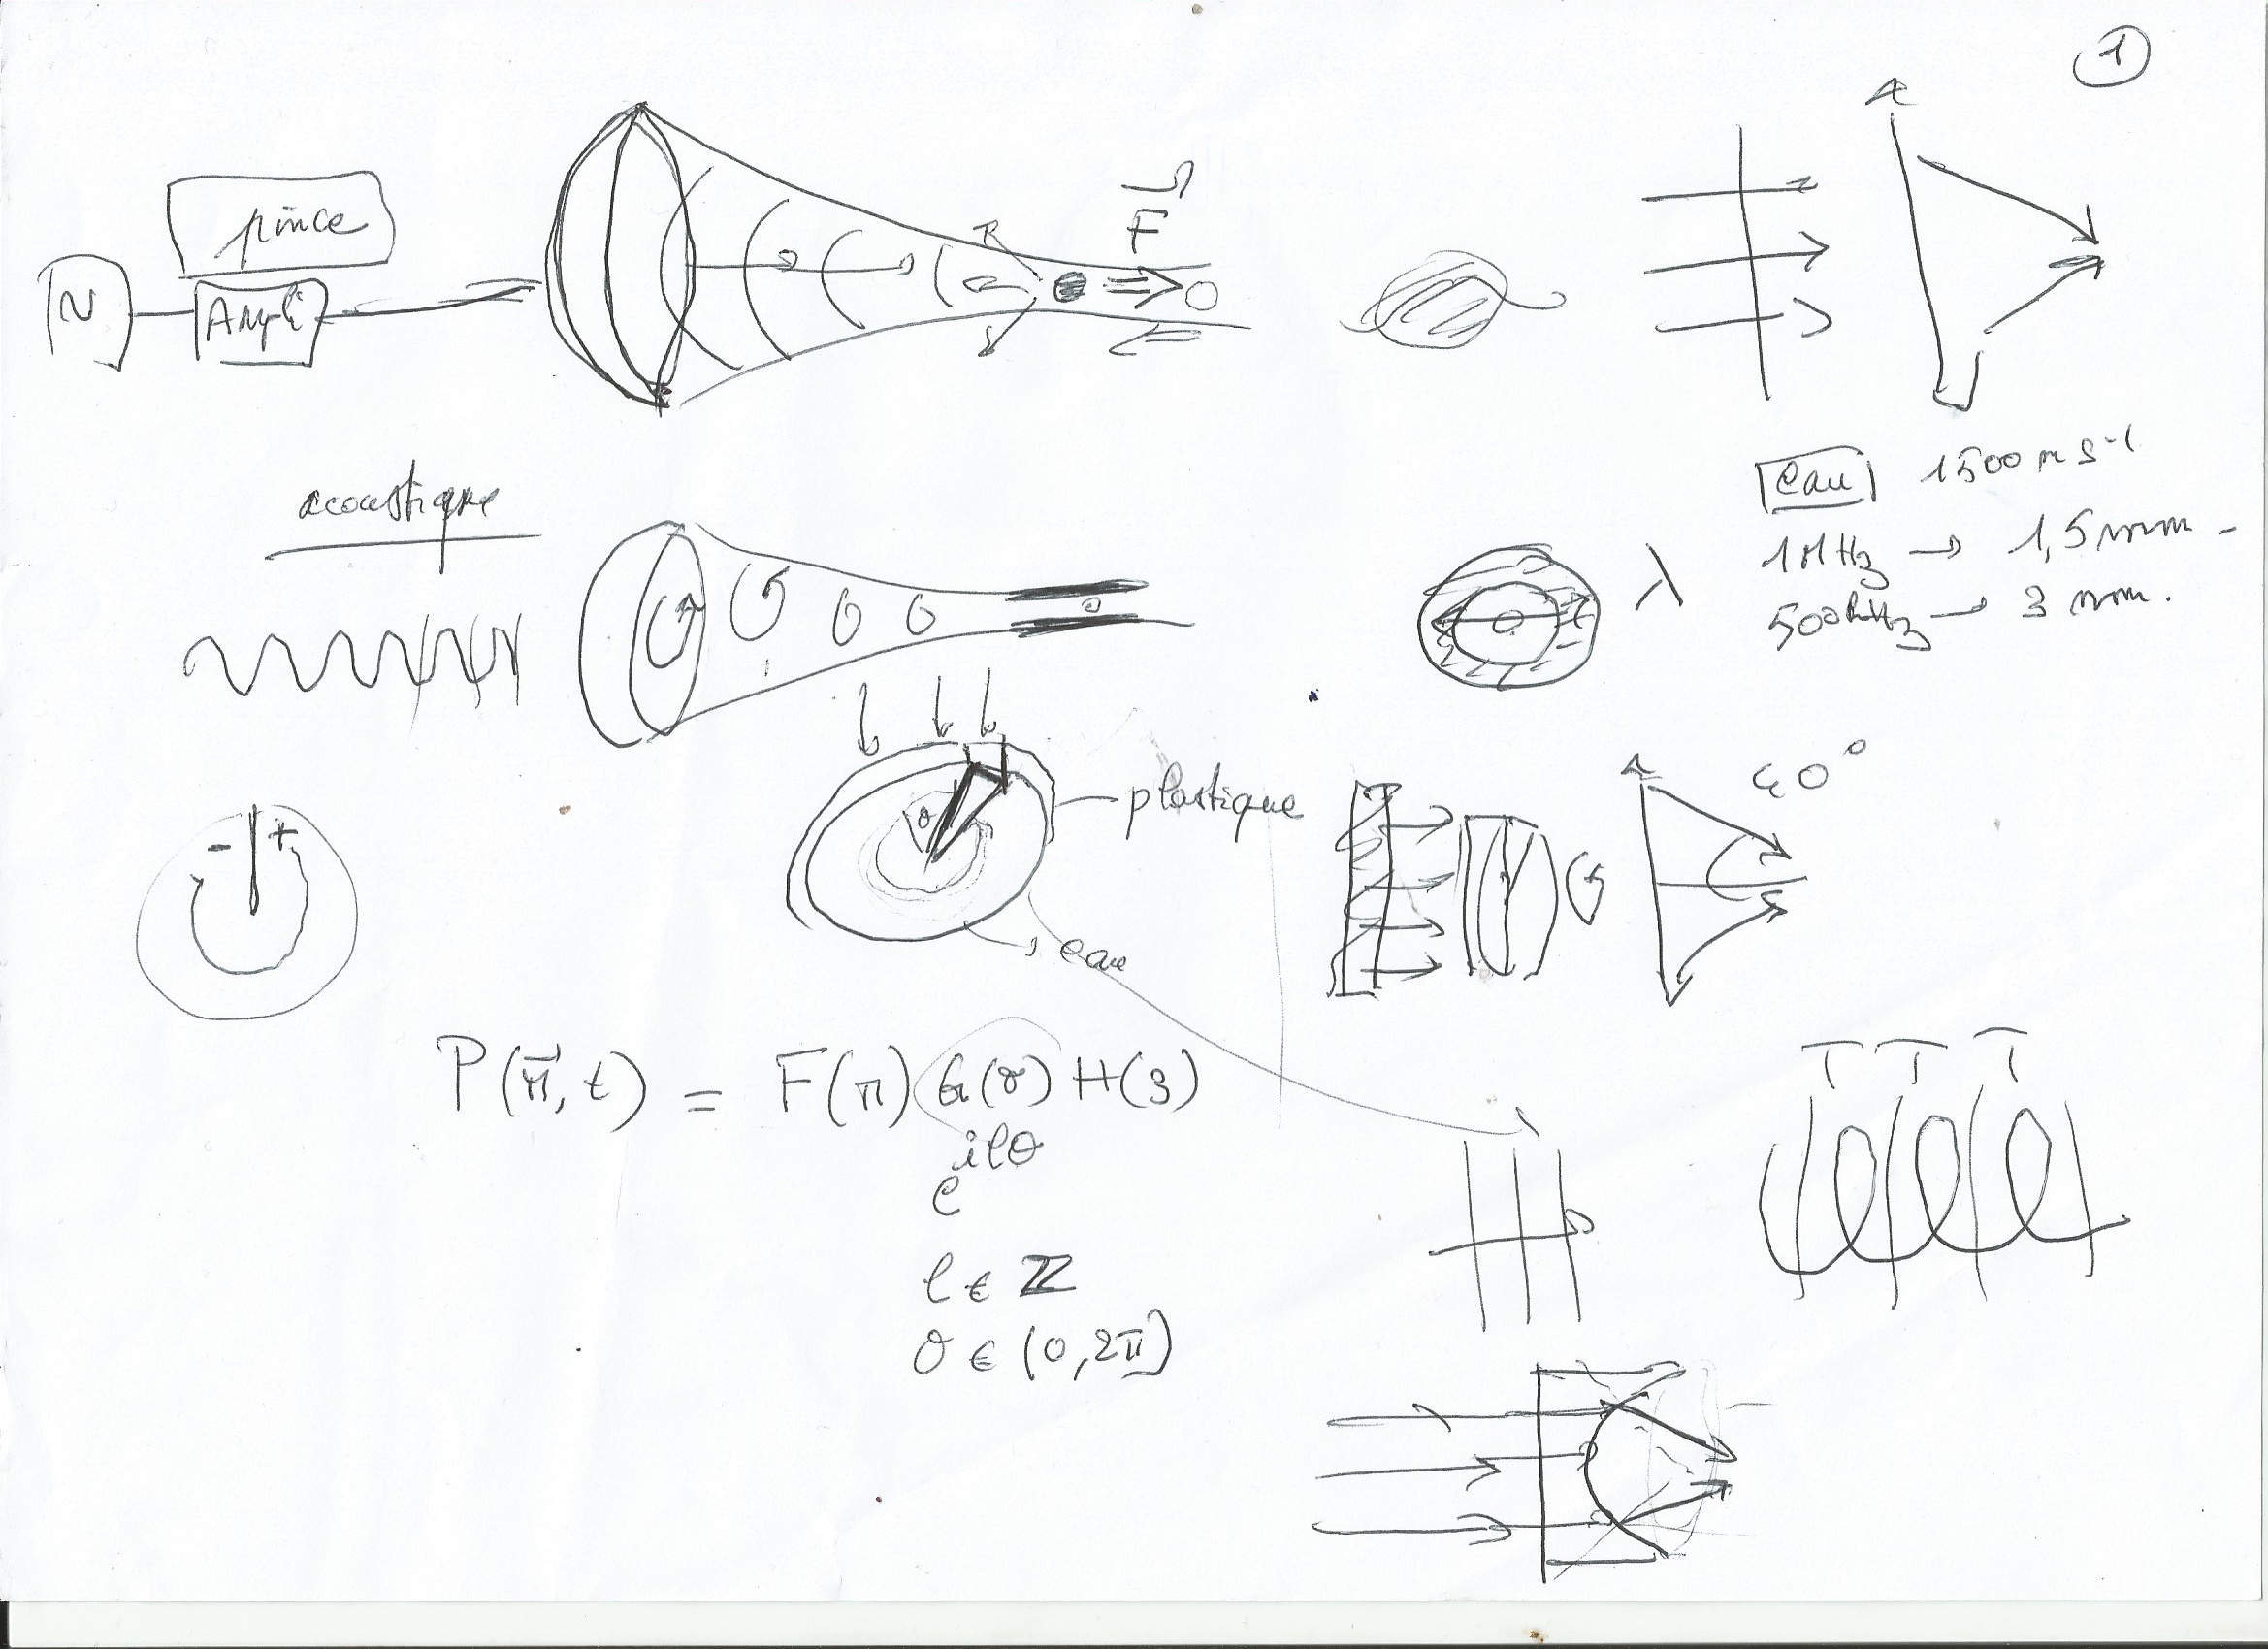 1
pince
N
Ampli
R
F
acoustique
eau 1500 m s⁻¹
1 MHz → 1,5 mm.
500 kHz → 3 mm.
λ
plastique
- +
θ
40°
eau
P(r⃗, t) = F(r) G(θ) H(z)
e^{ilθ}
l ∈ ℤ
θ ∈ (0, 2π)
T T T